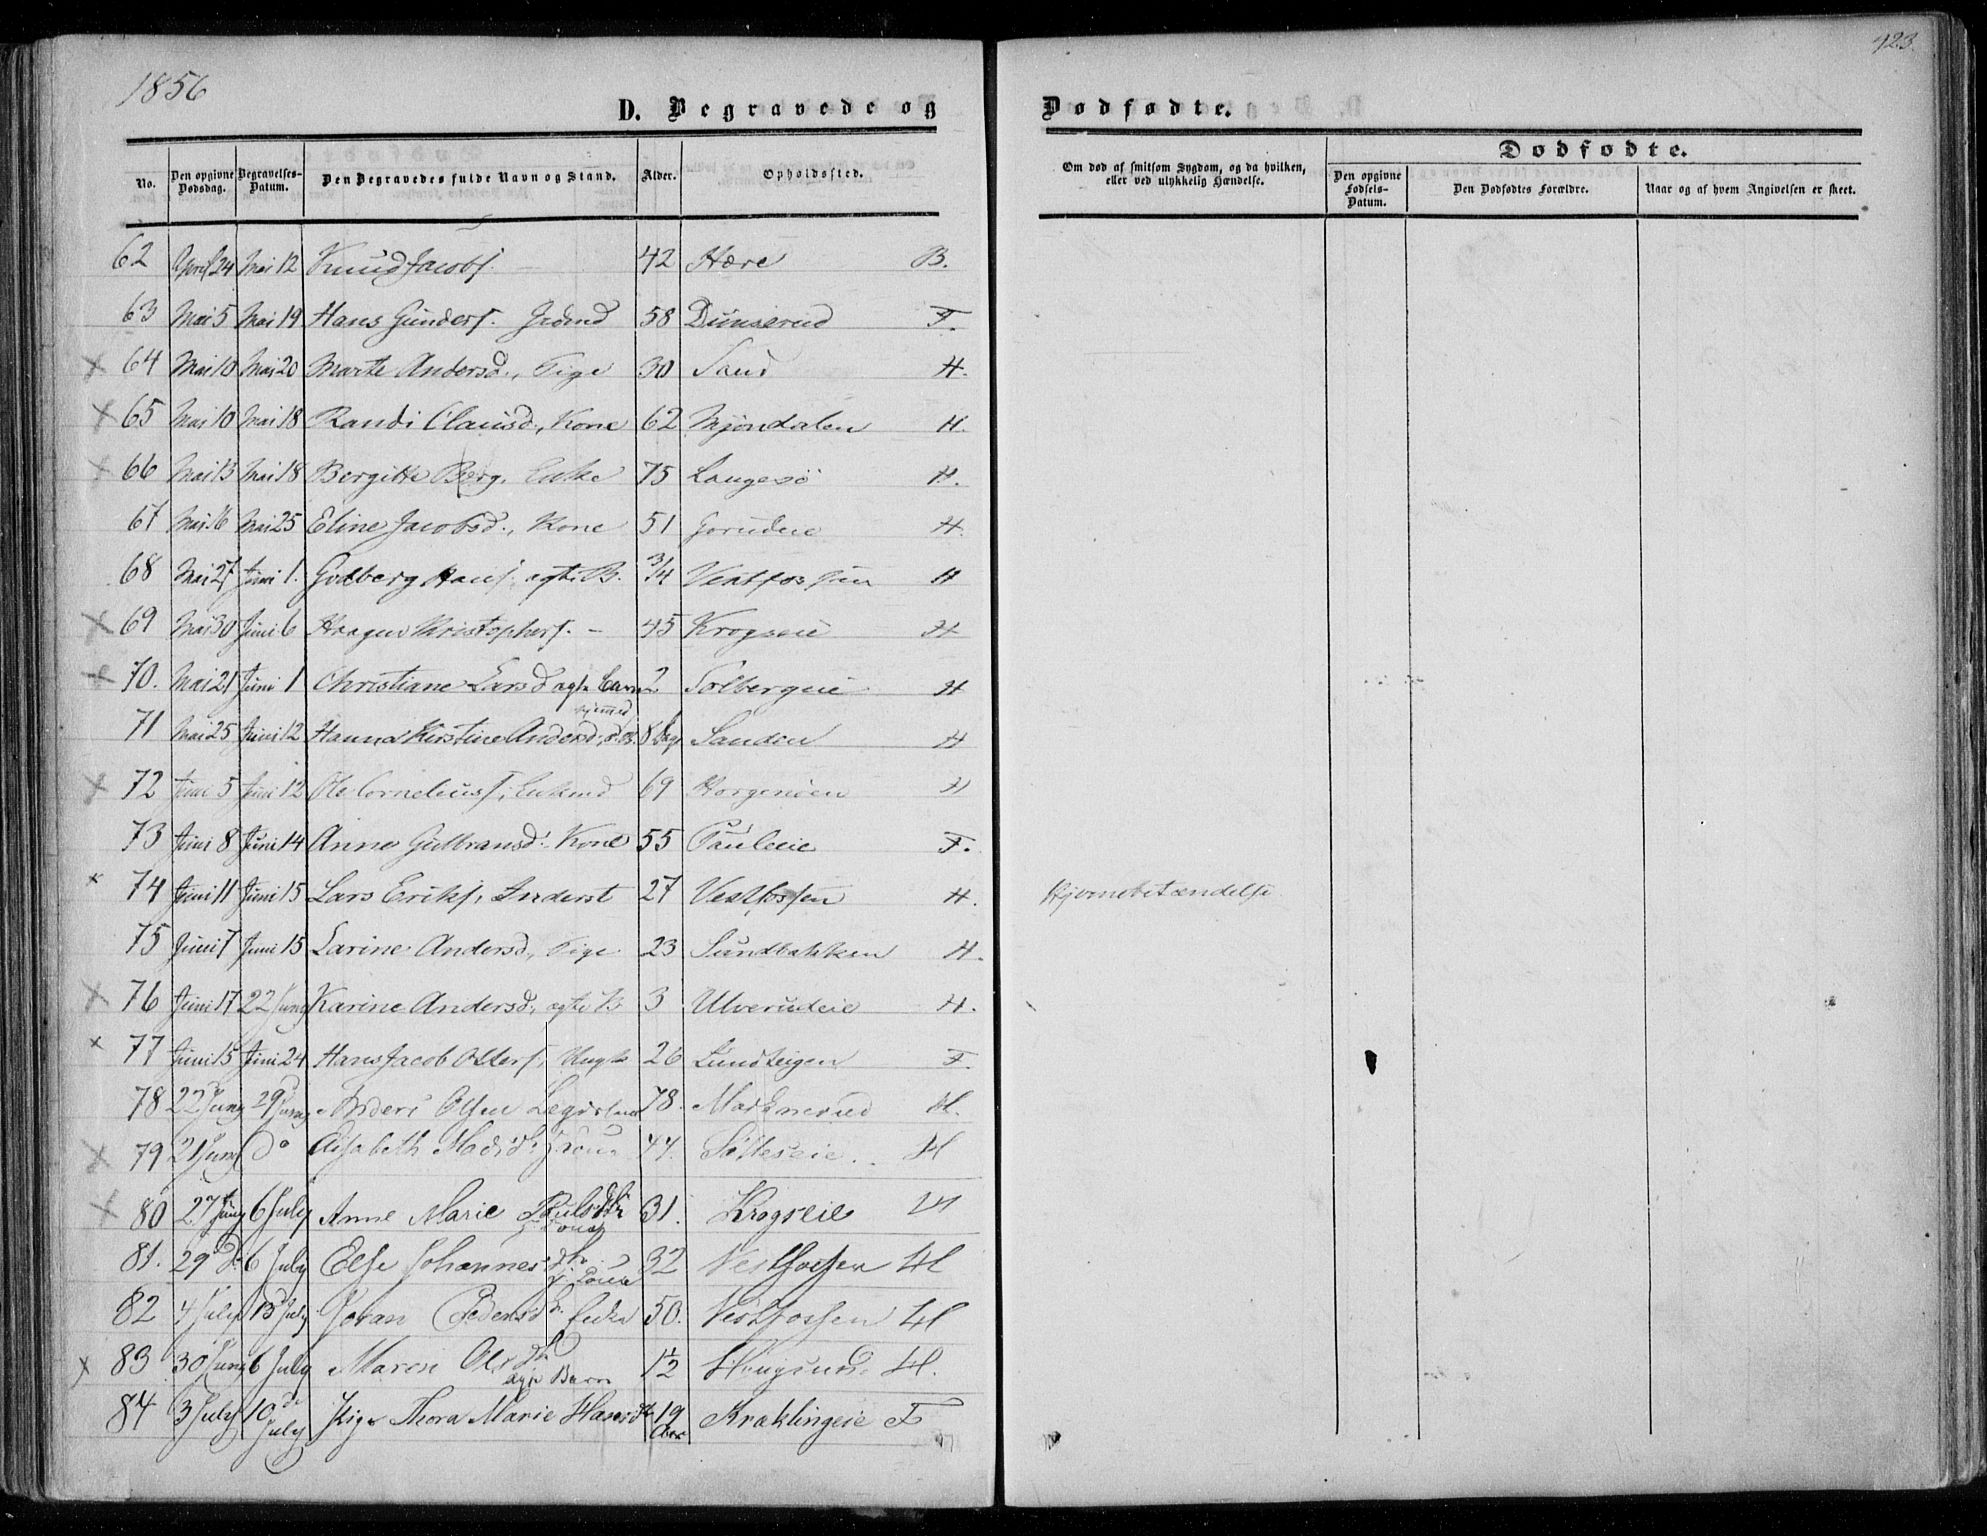 1856
423.
D. Begravede og
Dødfødte.
No. Den opgivne Dødsdag. Begravelses-Datum. Den Begravedes fulde Navn og Stand. Alder. Opholdssted.
Om død af smitsom Sygdom, og da hvilken, eller ved ulykkelig Hændelse.
Dødfødte.
Den opgivne Fødsels-Datum. Den Dødfødtes Forældre. Naar og af hvem Angivelsen er skeet.
62 April 24 Mai 12 Knud Jacobs. 42 Hære B.
63 Mai 5 Mai 19 Hans Gunders. Grdmd 58 Dunserud F.
64 Mai 10 Mai 20 Marte Andersd., Pige 30 Sand H.
65 Mai 10 Mai 18 Randi Clausd., Kone 62 Mjøndalen H.
66 Mai 13 Mai 18 Bergitte Berg, Enke 75 Langesø H.
67 Mai 16 Mai 25 Eline Jacobsd., Kone 51 H.
68 Mai 27 Juni 1. Gulberg Hans. ægte B. 3/4 Vestfossen H
69 Mai 30 Juni 6 Haagen Kristophers. - 45 Krogseie H
70. Mai 21 Juni 1 Christiane Larsd ægte Barn 2 Solbergeie H
71 Mai 25 Juni 12 Hanna Kirstine Andersd., hjemmed. d. B. 8 Dage Sanden H
72 Juni 5 Juni 12 Ole Cornelius., Enkemd 69 Horgenøen H
73 Juni 8 Juni 14 Anne Gulbransd. Kone 55 Pauleeie F.
74 Juni 11 Juni 15 Lars Eriks. Inderst 27 Vestfossen H. Hjernebetændelse
75 Juni 7 Juni 15 Larine Andersd., Pige 23 Sundbakken H.
76 Juni 17 22 Juny Karine Andersd., ægte B 3 Ulverudeie H.
77 Juni 15 Juni 24 Hans Jacob Olsers., Ungk 26 Lundteigen F.
78 22 Juny 29 Juny Anders Olsen Legdslem 78. H.
79 21 Juny do Elisabeth Madsd. Kone 44. H
80 27 Juny 6 July Anne Marie Paulsdtr Kone 31. Krogseie H
81. 29 do 6 July Else Johannesdtr Kone 32 Vestfossen H
82 4 July 13 July Joran Pedersdtr Enke 50. Vestfossen H
83 30 Juny 6 July Maren Olsdtr ægte Barn 1 1/2 Hougsund H.
84 3 July 10 de July Pige Thora Marie Hansdtr 19 Aar Kræklingeie F